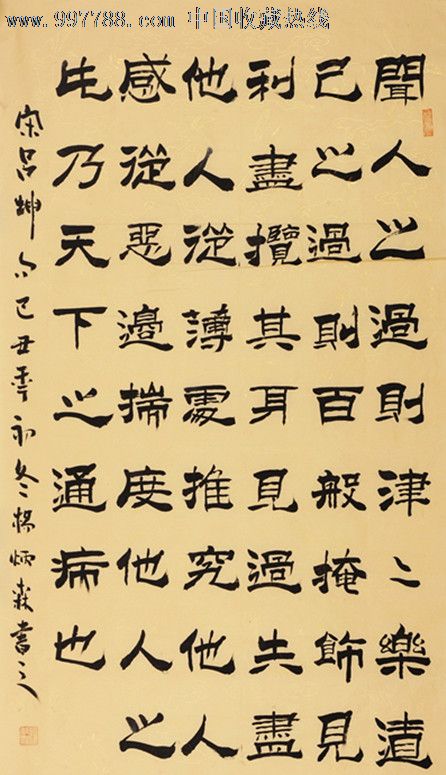 www.997788.com 中国收藏热线
聞人之過則津〻樂道
己之過則百般掩飾見
利盡攬其身見過失盡
他人從薄處推究他人
感從惡邊揣度他人之
此乃天下之通病也
宋吕坤句己丑秊初冬楊炳森書之